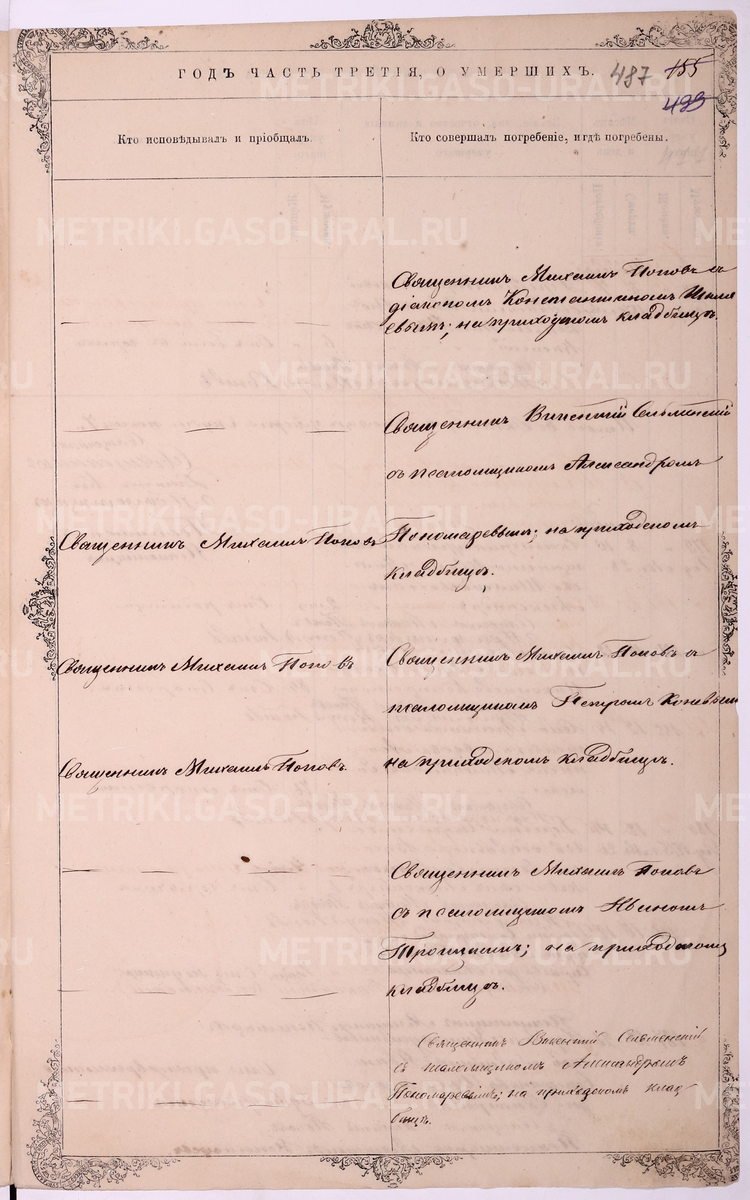 ГОДЪ ЧАСТЬ ТРЕТІЯ, О УМЕРШИХЪ.
487
155
Кто исповѣдывалъ и пріобщалъ.
Кто совершалъ погребеніе, и гдѣ погребены.
Священникъ Михаилъ Поповъ съ
діакономъ Константиномъ
евымъ; на приходскомъ кладбищѣ.
Священникъ Викентій Сельменскій
съ псаломщикомъ Александромъ
Пономаревымъ; на приходскомъ
кладбищѣ.
Священникъ Михаилъ Поповъ
Священникъ Михаилъ Поповъ
Священникъ Михаилъ Поповъ съ
псаломщикомъ Петромъ Коневымъ
Священникъ Михаилъ Поповъ.
на приходскомъ кладбищѣ.
Священникъ Михаилъ Поповъ
съ псаломщикомъ
Троицкимъ; на приходскомъ
кладбищѣ.
Священникъ Викентій Сельменскій
съ псаломщикомъ Александромъ
Пономаревымъ; на приходскомъ клад
бищѣ.
METRIKI.GASO-URAL.RU